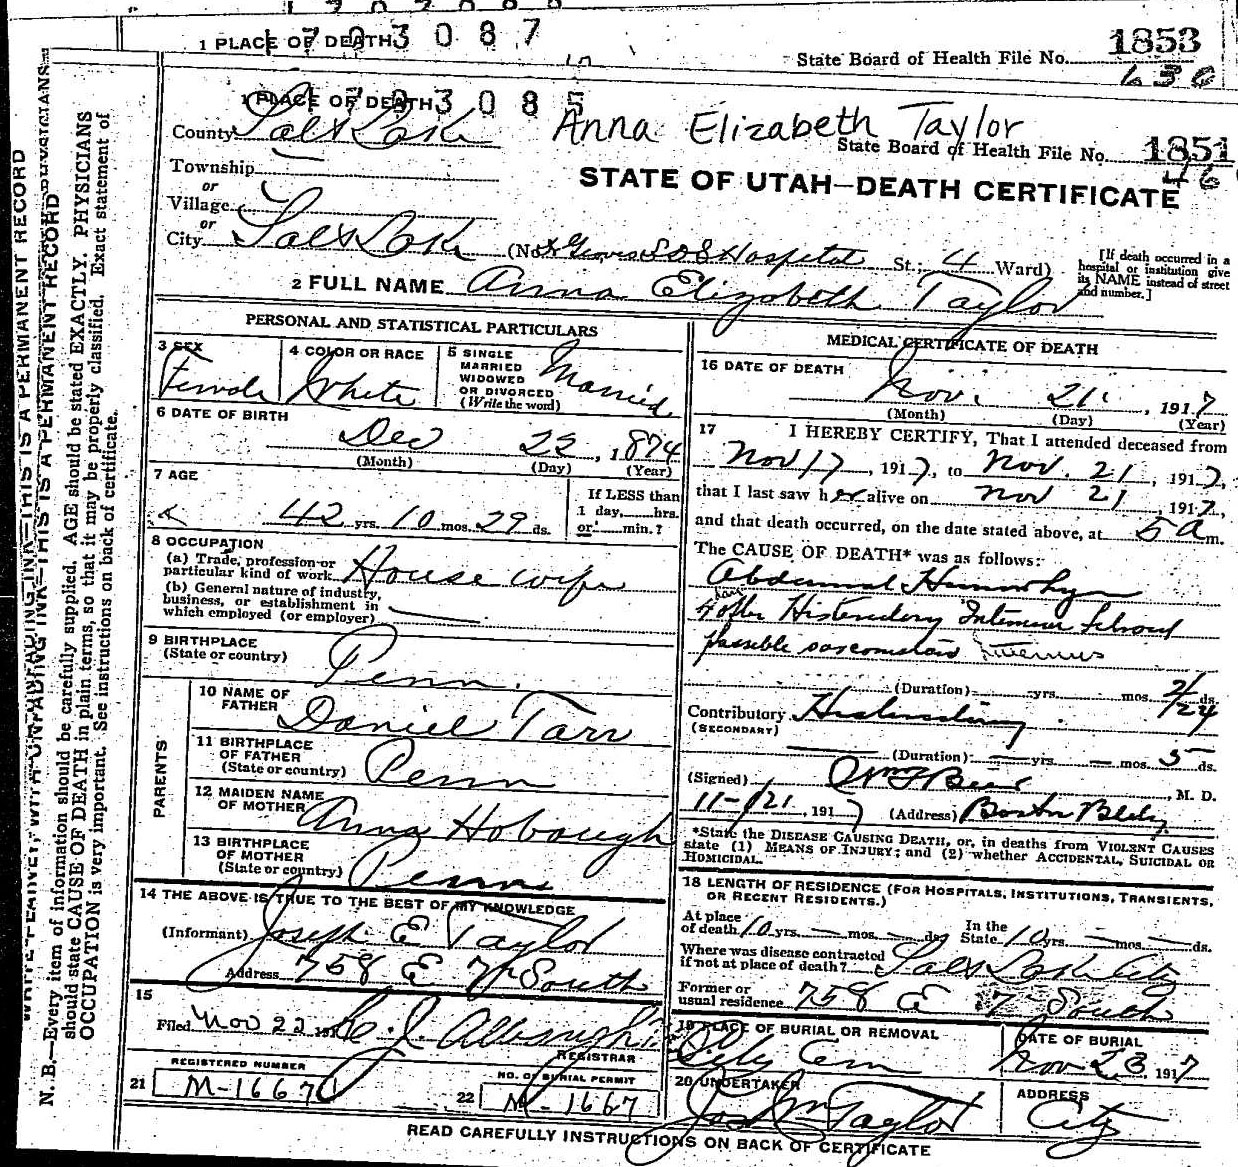 1 PLACE OF DEATH 3 0 8 7
State Board of Health File No. 1853
PLACE OF DEATH 3 0 8 5
Anna Elizabeth Taylor
County Salt Lake
State Board of Health File No. 1851
Township
STATE OF UTAH—DEATH CERTIFICATE
or
Village
or
City Salt Lake (No. Hospital St.; 4 Ward)
[If death occurred in a hospital or institution give its NAME instead of street and number.]
2 FULL NAME Anna Elizabeth Taylor
PERSONAL AND STATISTICAL PARTICULARS
3 SEX
Female
4 COLOR OR RACE
White
5 SINGLE
MARRIED
WIDOWED
OR DIVORCED
(Write the word)
Married
6 DATE OF BIRTH
Dec 23, 1874
(Month) (Day) (Year)
7 AGE
42 yrs. 10 mos. 29 ds.
If LESS than
1 day, hrs.
or min.?
8 OCCUPATION
(a) Trade, profession or
particular kind of work House wife
(b) General nature of industry,
business, or establishment in
which employed (or employer)
9 BIRTHPLACE
(State or country) Penn.
PARENTS
10 NAME OF
FATHER Daniel Tarr
11 BIRTHPLACE
OF FATHER
(State or country) Penn
12 MAIDEN NAME
OF MOTHER Anna Hobaugh
13 BIRTHPLACE
OF MOTHER
(State or country) Penn
14 THE ABOVE IS TRUE TO THE BEST OF MY KNOWLEDGE
(Informant) Joseph E Taylor
Address 758 E 7 South
15
Filed Nov 22 191
REGISTRAR
REGISTERED NUMBER
21 M-1667
NO. OF BURIAL PERMIT
22 M-1667
MEDICAL CERTIFICATE OF DEATH
16 DATE OF DEATH
Nov. 21, 1917
(Month) (Day) (Year)
17 I HEREBY CERTIFY, That I attended deceased from
Nov 17, 1917, to Nov. 21, 1917,
that I last saw her alive on Nov 21, 1917,
and that death occurred, on the date stated above, at 5 a m.
The CAUSE OF DEATH* was as follows:
possible
(Duration) yrs. mos. ds.
Contributory
(SECONDARY)
(Duration) yrs. mos. 5 ds.
(Signed) , M. D.
11-21, 1917 (Address) Boston Bldg
*State the DISEASE CAUSING DEATH, or, in deaths from VIOLENT CAUSES
state (1) MEANS OF INJURY; and (2) whether ACCIDENTAL, SUICIDAL OR
HOMICIDAL.
18 LENGTH OF RESIDENCE (FOR HOSPITALS, INSTITUTIONS, TRANSIENTS,
OR RECENT RESIDENTS.)
At place
of death 10 yrs. mos. ds. In the State 10 yrs. mos. ds.
Where was disease contracted
if not at place of death? Salt Lake City
Former or
usual residence 758 E 7 South
19 PLACE OF BURIAL OR REMOVAL
City Cem
DATE OF BURIAL
Nov 23, 1917
20 UNDERTAKER
Jos Wm Taylor
ADDRESS
City
READ CAREFULLY INSTRUCTIONS ON BACK OF CERTIFICATE
WRITE PLAINLY, WITH UNFADING INK—THIS IS A PERMANENT RECORD
N. B.—Every item of information should be carefully supplied. AGE should be stated EXACTLY. PHYSICIANS
should state CAUSE OF DEATH in plain terms, so that it may be properly classified. Exact statement of
OCCUPATION is very important. See instructions on back of certificate.